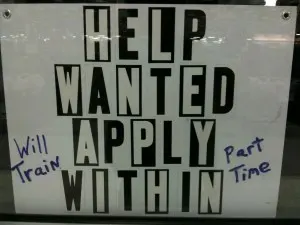 HELP
WANTED
APPLY
WITHIN
Will
Train
Part
Time